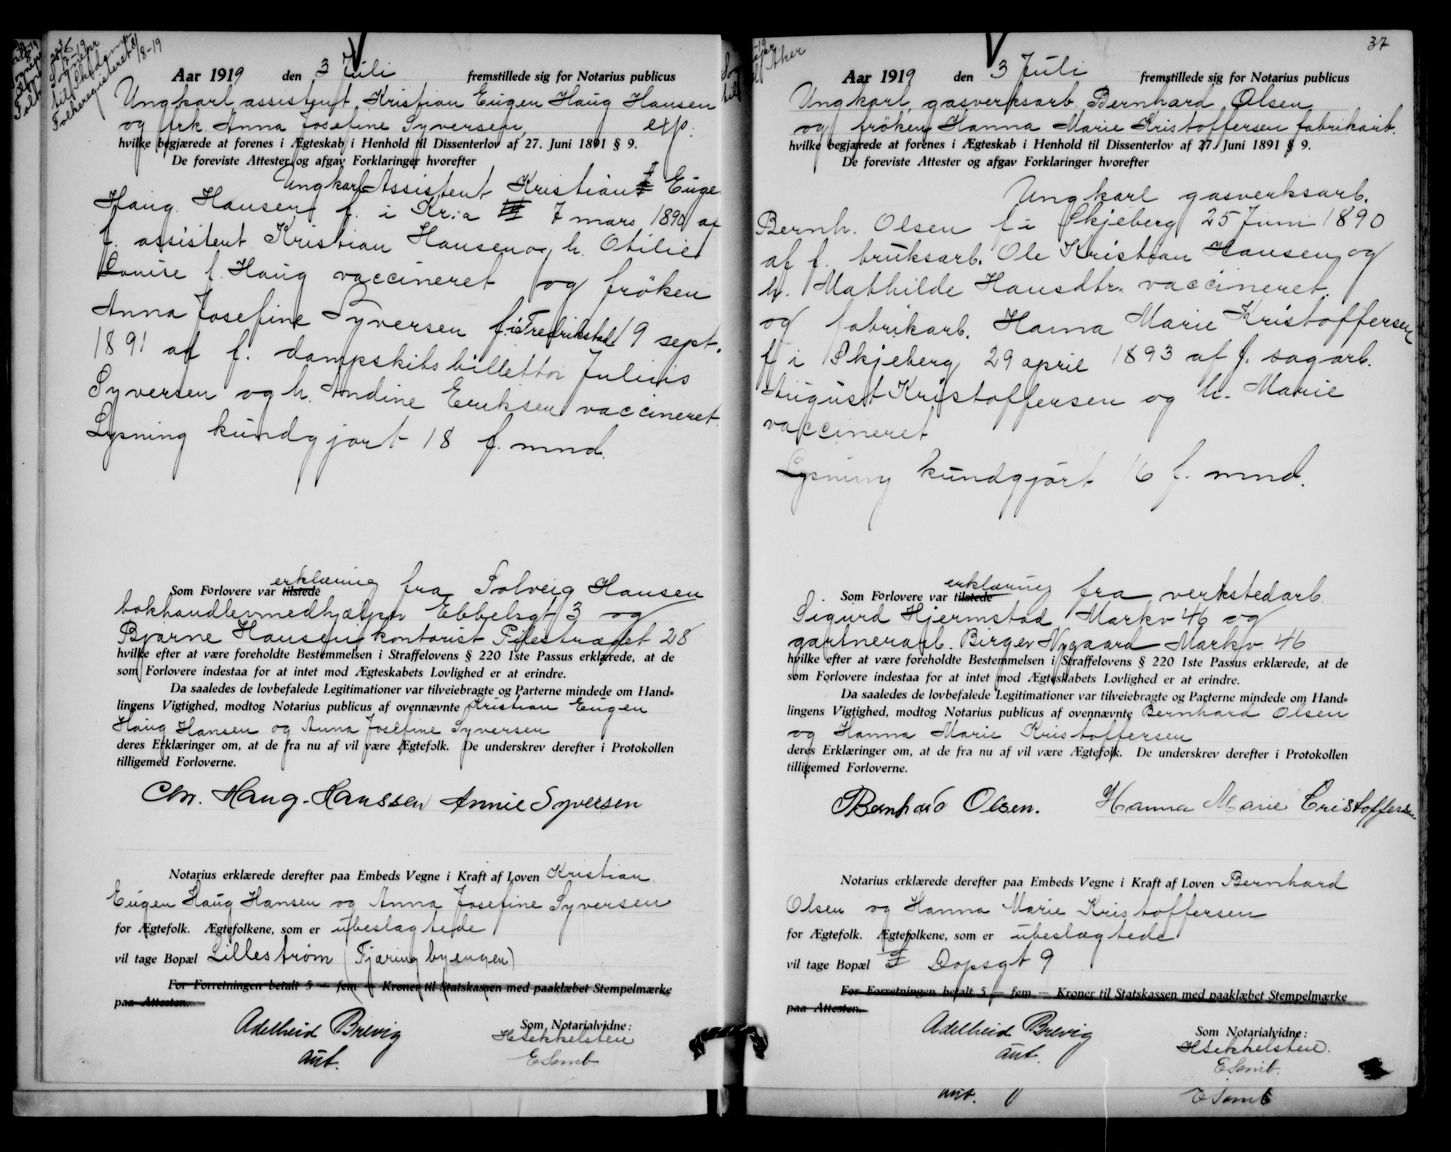 Aar 1919 den 3 Juli fremstillede sig for Notarius publicus
Ungkarl, assistent Kristian Eugen Haug Hansen
og frk. Anna Josefine Syversen, exp.
hvilke begjærede at forenes i Ægteskab i Henhold til Dissenterlov af 27. Juni 1891 § 9.
De foreviste Attester og afgav Forklaringer hvorefter
Ungkarl Assistent Kristian Euge
Haug Hansen f. i Kr.a 7 mars 1890 af
f. assistent Kristian Hansen og h. Otilie
Louise f. Haug vaccineret og frøken
Anna Josefine Syversen f. i Fredrikstad 19 sept.
1891 af f. dampskibsbillettør Julius
Syversen og h. Andine Eriksen vaccineret.
Lysning kundgjort 18 f. mnd.
erklæring
Som Forlovere var tilstede fra Solveig Hansen
bokhandlermedhjælper Ebbelsgt 3 og
Bjarne Hansen kontorist Pilestrædet 28
hvilke efter at være foreholdte Bestemmelsen i Straffelovens § 220 1ste Passus erklærede, at de
som Forlovere indestaa for at intet mod Ægteskabets Lovlighed er at erindre.
Da saaledes de lovbefalede Legitimationer var tilveiebragte og Parterne mindede om Hand-
lingens Vigtighed, modtog Notarius publicus af ovennævnte Kristian Eugen
Haug Hansen og Anna Josefine Syversen
deres Erklæringer om, at de fra nu af vil være Ægtefolk. De underskrev derefter i Protokollen
tilligemed Forloverne.
Chr. Haug-Hanssen Annie Syversen
Notarius erklærede derefter paa Embeds Vegne i Kraft af Loven Kristian
Eugen Haug Hansen og Anna Josefine Syversen
for Ægtefolk. Ægtefolkene, som er ubeslægtede
vil tage Bopæl Lillestrøm (Tjæringbyengen)
For Forretningen betalt 5 — fem — Kroner til Statskassen med paaklæbet Stempelmærke
paa Attesten.
Adelheid Brevig Som Notarialvidne:
aut. HSekkelsten
ESemb
37
Aar 1919 den 3 Juli fremstillede sig for Notarius publicus
Ungkarl, gasverksarb. Bernhard Olsen
og frøken Hanna Marie Kristoffersen fabrikarb.
hvilke begjærede at forenes i Ægteskab i Henhold til Dissenterlov af 27. Juni 1891 § 9.
De foreviste Attester og afgav Forklaringer hvorefter
Ungkarl gasverksarb.
Bernh. Olsen f. i Skjeberg 25 Juni 1890
af f. bruksarb. Ole Kristian Hansen og
h. Mathilde Hansdtr. vaccineret.
og fabrikarb. Hanna Marie Kristoffersen
f. i Skjeberg 29 april 1893 af f. sagarb.
August Kristoffersen og h. Marie
vaccineret
Lysning kundgjort 16 f. mnd.
erklæring
Som Forlovere var tilstede fra verkstedarb
Sigurd Hjermstad Markv 46 og
gartnerarb. Birger Nygaard Markv. 46
hvilke efter at være foreholdte Bestemmelsen i Straffelovens § 220 1ste Passus erklærede, at de
som Forlovere indestaa for at intet mod Ægteskabets Lovlighed er at erindre.
Da saaledes de lovbefalede Legitimationer var tilveiebragte og Parterne mindede om Hand-
lingens Vigtighed, modtog Notarius publicus af ovennævnte Bernhard Olsen
og Hanna Marie Kristoffersen
deres Erklæringer om, at de fra nu af vil være Ægtefolk. De underskrev derefter i Protokollen
tilligemed Forloverne.
Bernhard Olsen. Hanna Marie Cristoffersen
Notarius erklærede derefter paa Embeds Vegne i Kraft af Loven Bernhard
Olsen og Hanna Marie Kristoffersen
for Ægtefolk. Ægtefolkene, som er ubeslægtede
vil tage Bopæl Dopsgt 9
For Forretningen betalt 5 — fem — Kroner til Statskassen med paaklæbet Stempelmærke
paa Attesten.
Adelheid Brevig Som Notarialvidne:
aut. HSekkelsten.
ESemb.
aut. ESemb